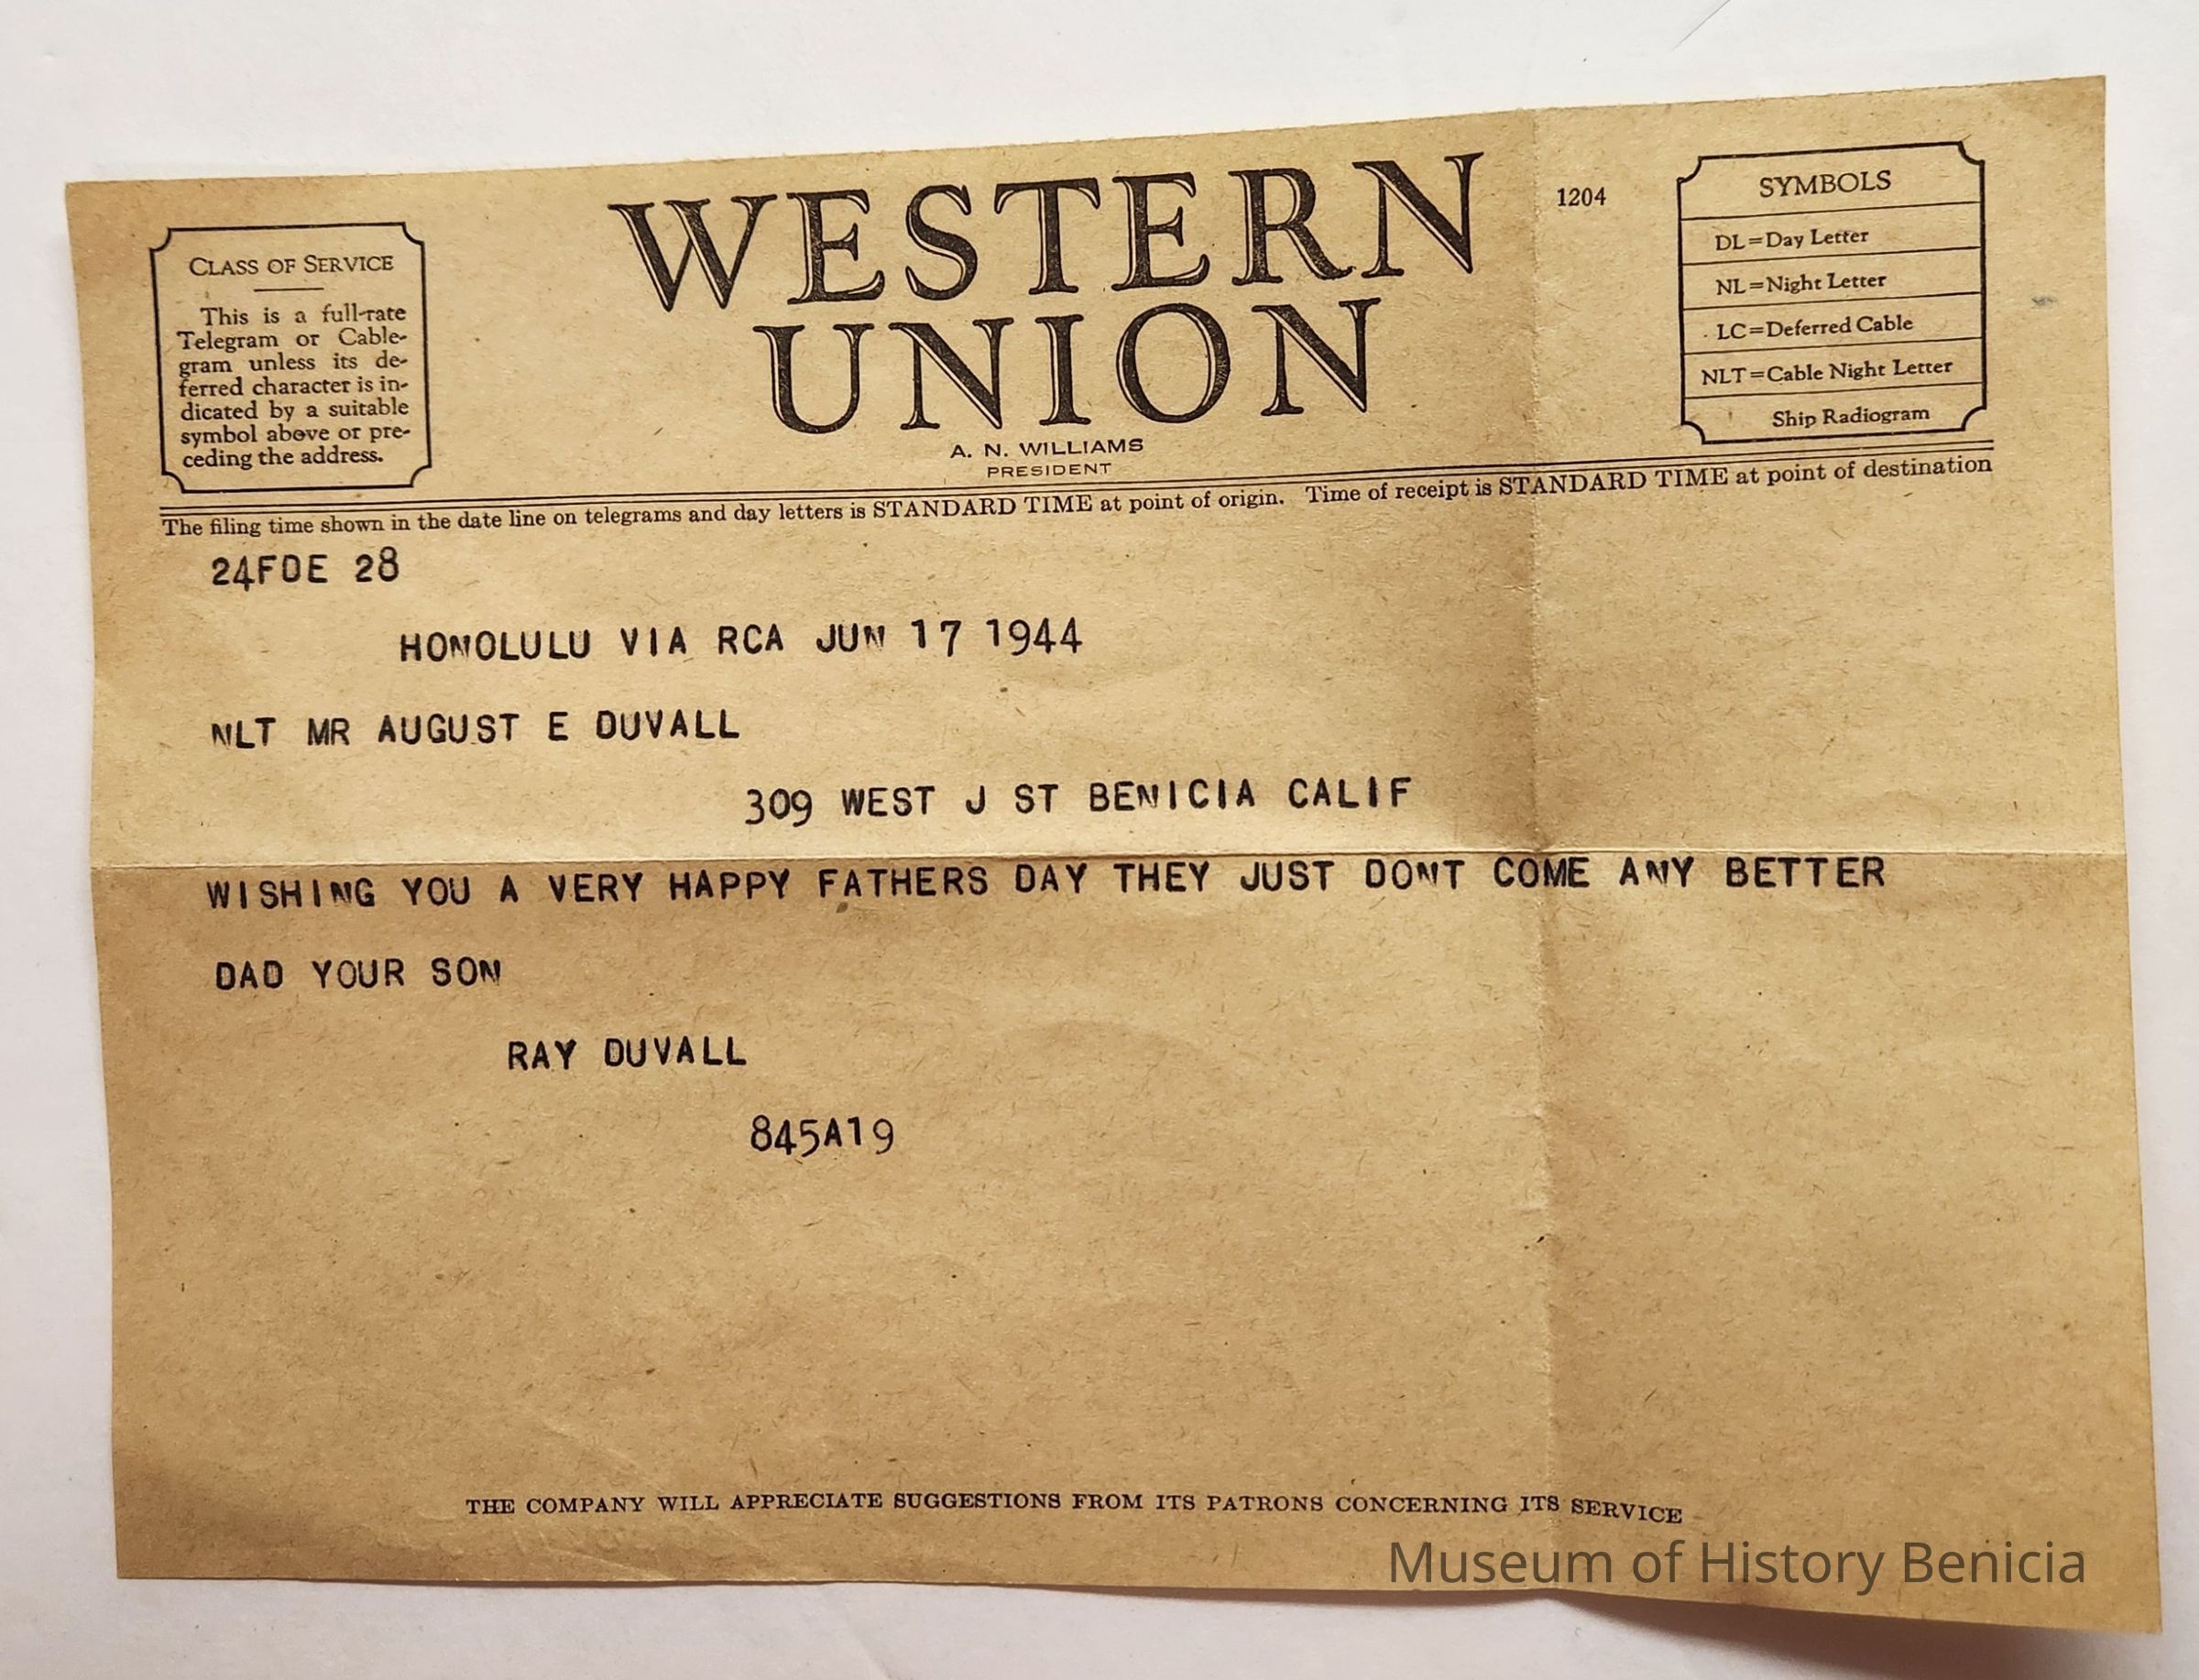 CLASS OF SERVICE
This is a full-rate
Telegram or Cable-
gram unless its de-
ferred character is in-
dicated by a suitable
symbol above or pre-
ceding the address.
WESTERN
UNION
A. N. WILLIAMS
PRESIDENT
1204
SYMBOLS
DL=Day Letter
NL=Night Letter
LC=Deferred Cable
NLT=Cable Night Letter
Ship Radiogram
The filing time shown in the date line on telegrams and day letters is STANDARD TIME at point of origin. Time of receipt is STANDARD TIME at point of destination
24FDE 28
HONOLULU VIA RCA JUN 17 1944
NLT MR AUGUST E DUVALL
309 WEST J ST BENICIA CALIF
WISHING YOU A VERY HAPPY FATHERS DAY THEY JUST DONT COME ANY BETTER
DAD YOUR SON
RAY DUVALL
845A19
THE COMPANY WILL APPRECIATE SUGGESTIONS FROM ITS PATRONS CONCERNING ITS SERVICE
Museum of History Benicia